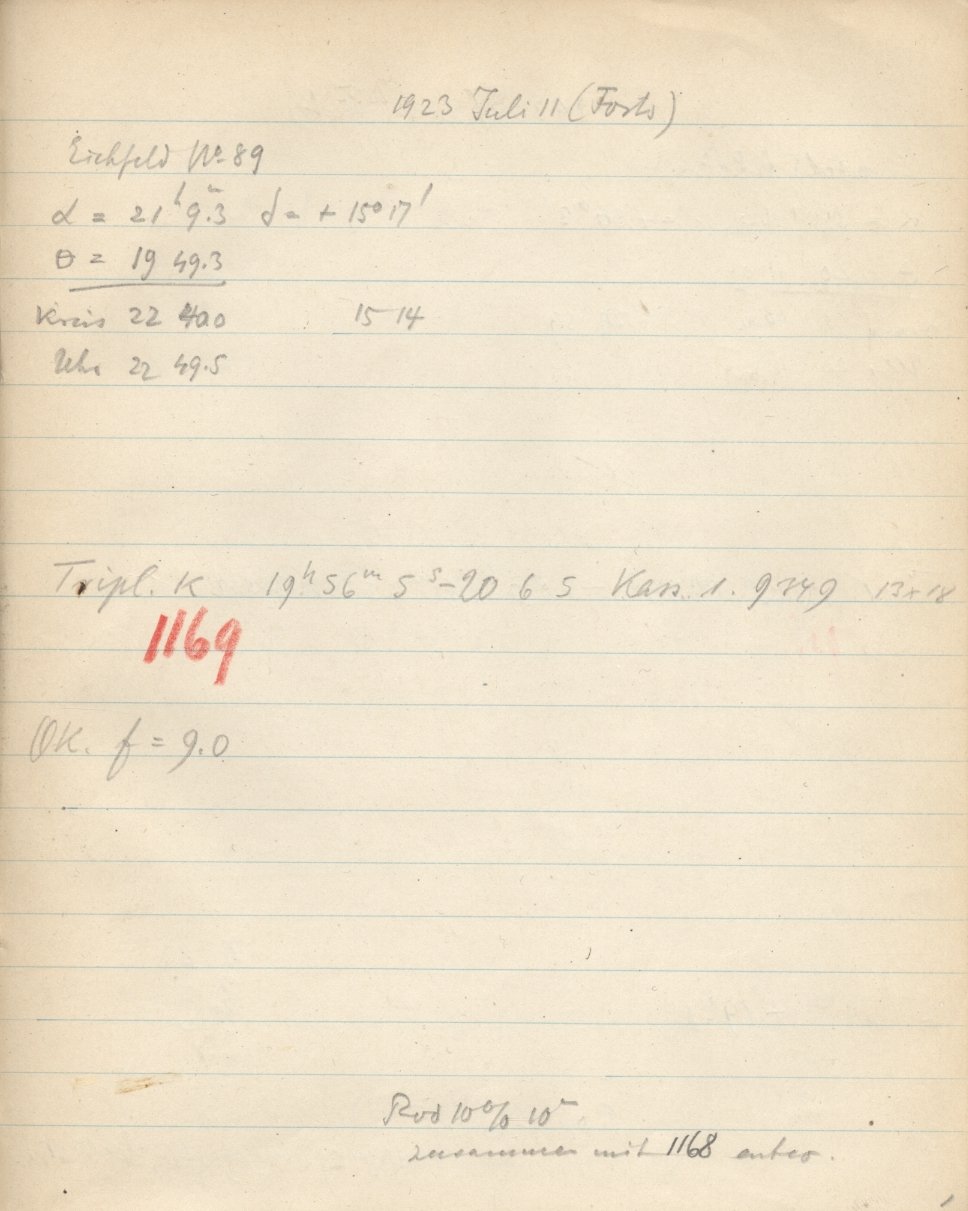 1923 Juli 11 (Forts)
Eichfeld No 89
α = 21h 9.m3 δ = + 15° 17'
θ = 19 49.3
Kreis 22 40.0 15 14
Uhr 22 49.5
Tripl. K 19h 56m 5s - 20 6 5 Kass. 1. 9749 13x18
1169
OK. f = 9.0
Rod 10% 10m
zusammen mit 1168 entw.